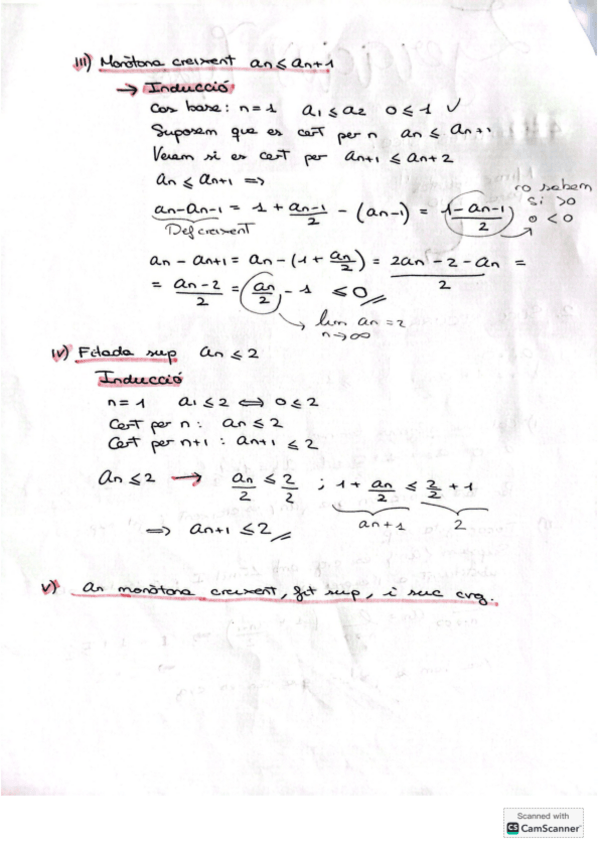 III) Monòtona creixent an ≤ an+1
→ Inducció
Cas base: n=1 a1 ≤ a2 0 ≤ 1 ✓
Suposem que es cert per n an ≤ an+1
Veiem si es cert per an+1 ≤ an+2
an ≤ an+1 ⇒
an-an-1 = 1 + an-1/2 - (an-1) = 1-an-1/2 no sabem si >0 o <0
Def creixent
an - an+1 = an - (1 + an/2) = 2an - 2 - an/2 =
= an-2/2 = an/2 - 1 ≤ 0
lim an = 2
n→∞
IV) Fitada sup an ≤ 2
Inducció
n=1 a1 ≤ 2 ⇔ 0 ≤ 2
Cert per n: an ≤ 2
Cert per n+1: an+1 ≤ 2
an ≤ 2 → an/2 ≤ 2/2 ; 1 + an/2 ≤ 2/2 + 1
an+1 2
⇒ an+1 ≤ 2
V) an monòtona creixent, fit sup, i suc cvg.
Scanned with
CS CamScanner